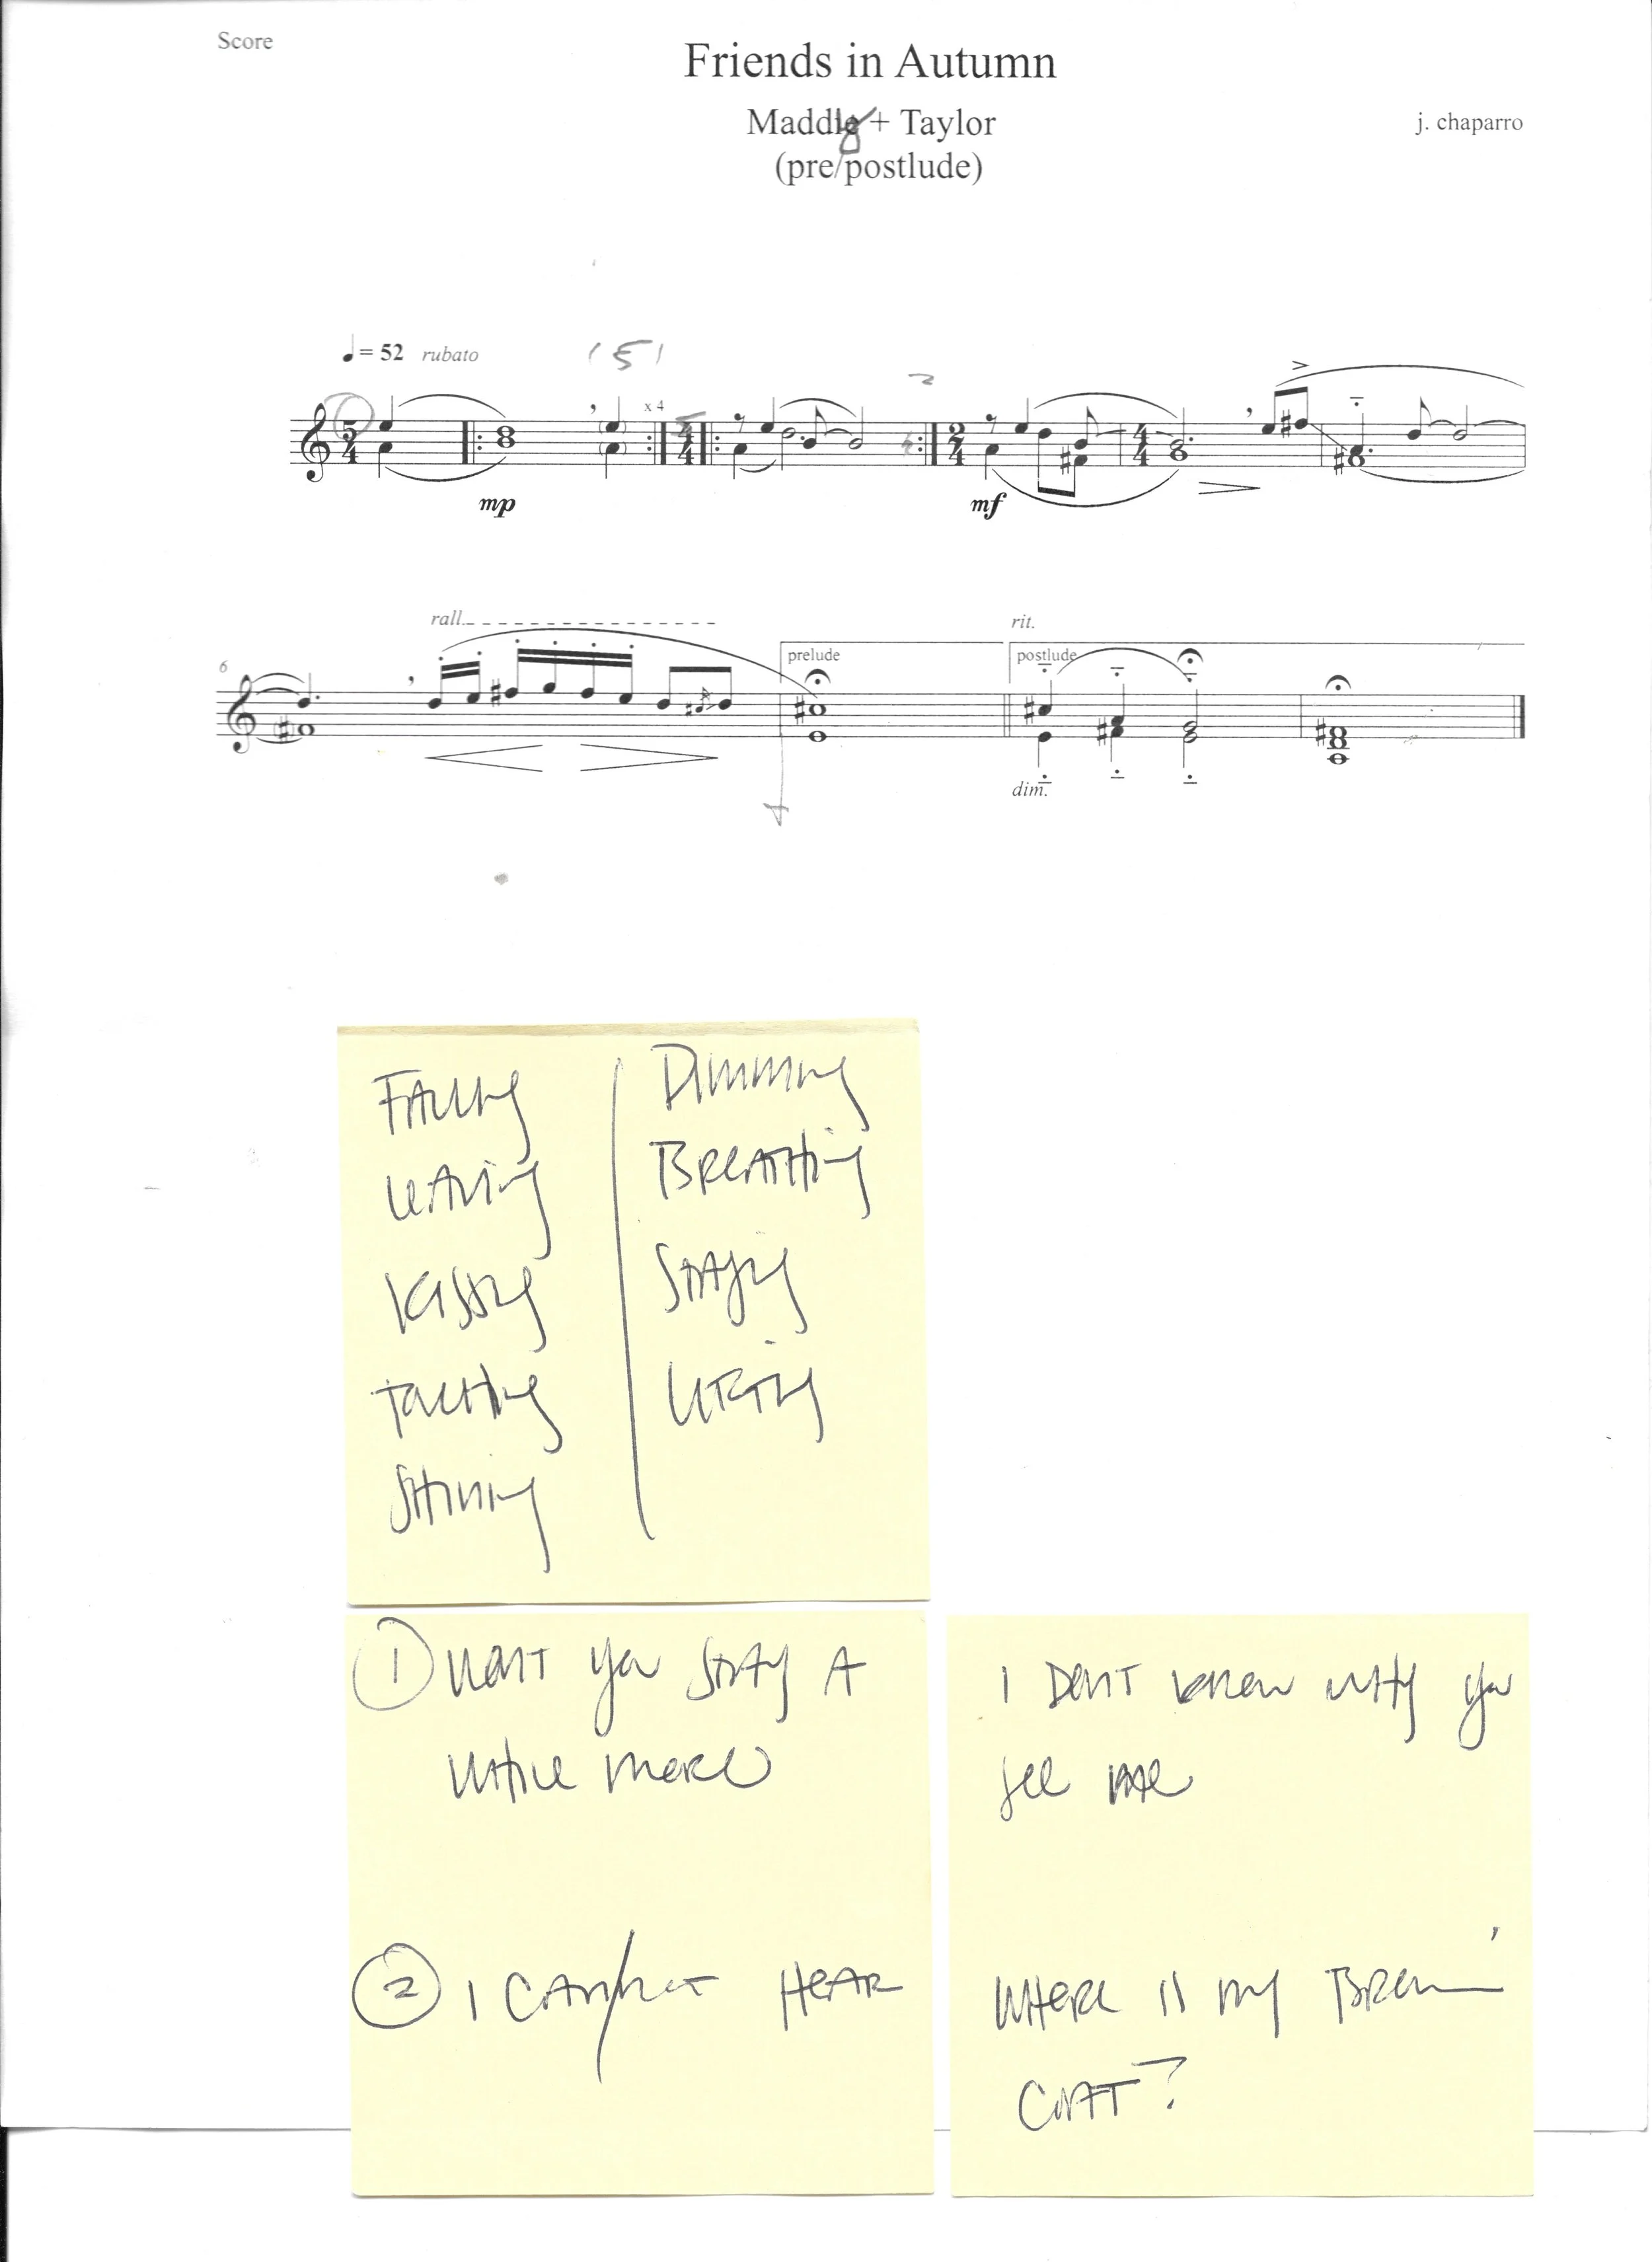 Score
Friends in Autumn
Maddie + Taylor
(pre/postlude)
j. chaparro
= 52 rubato
(5)
x 4
5
4
4
4
2
4
4
4
mp
mf
6
rall.
prelude
rit.
postlude
dim.
FALLING
LEAVING
KISSING
TOUCHING
SHINING
DIMMING
BREATHING
STAYING
1 WON'T YOU STAY A
WHILE MORE
2 I CANNOT HEAR
I DON'T KNOW WHY YOU
SEE ME
WHERE IS MY BROWN
COAT?